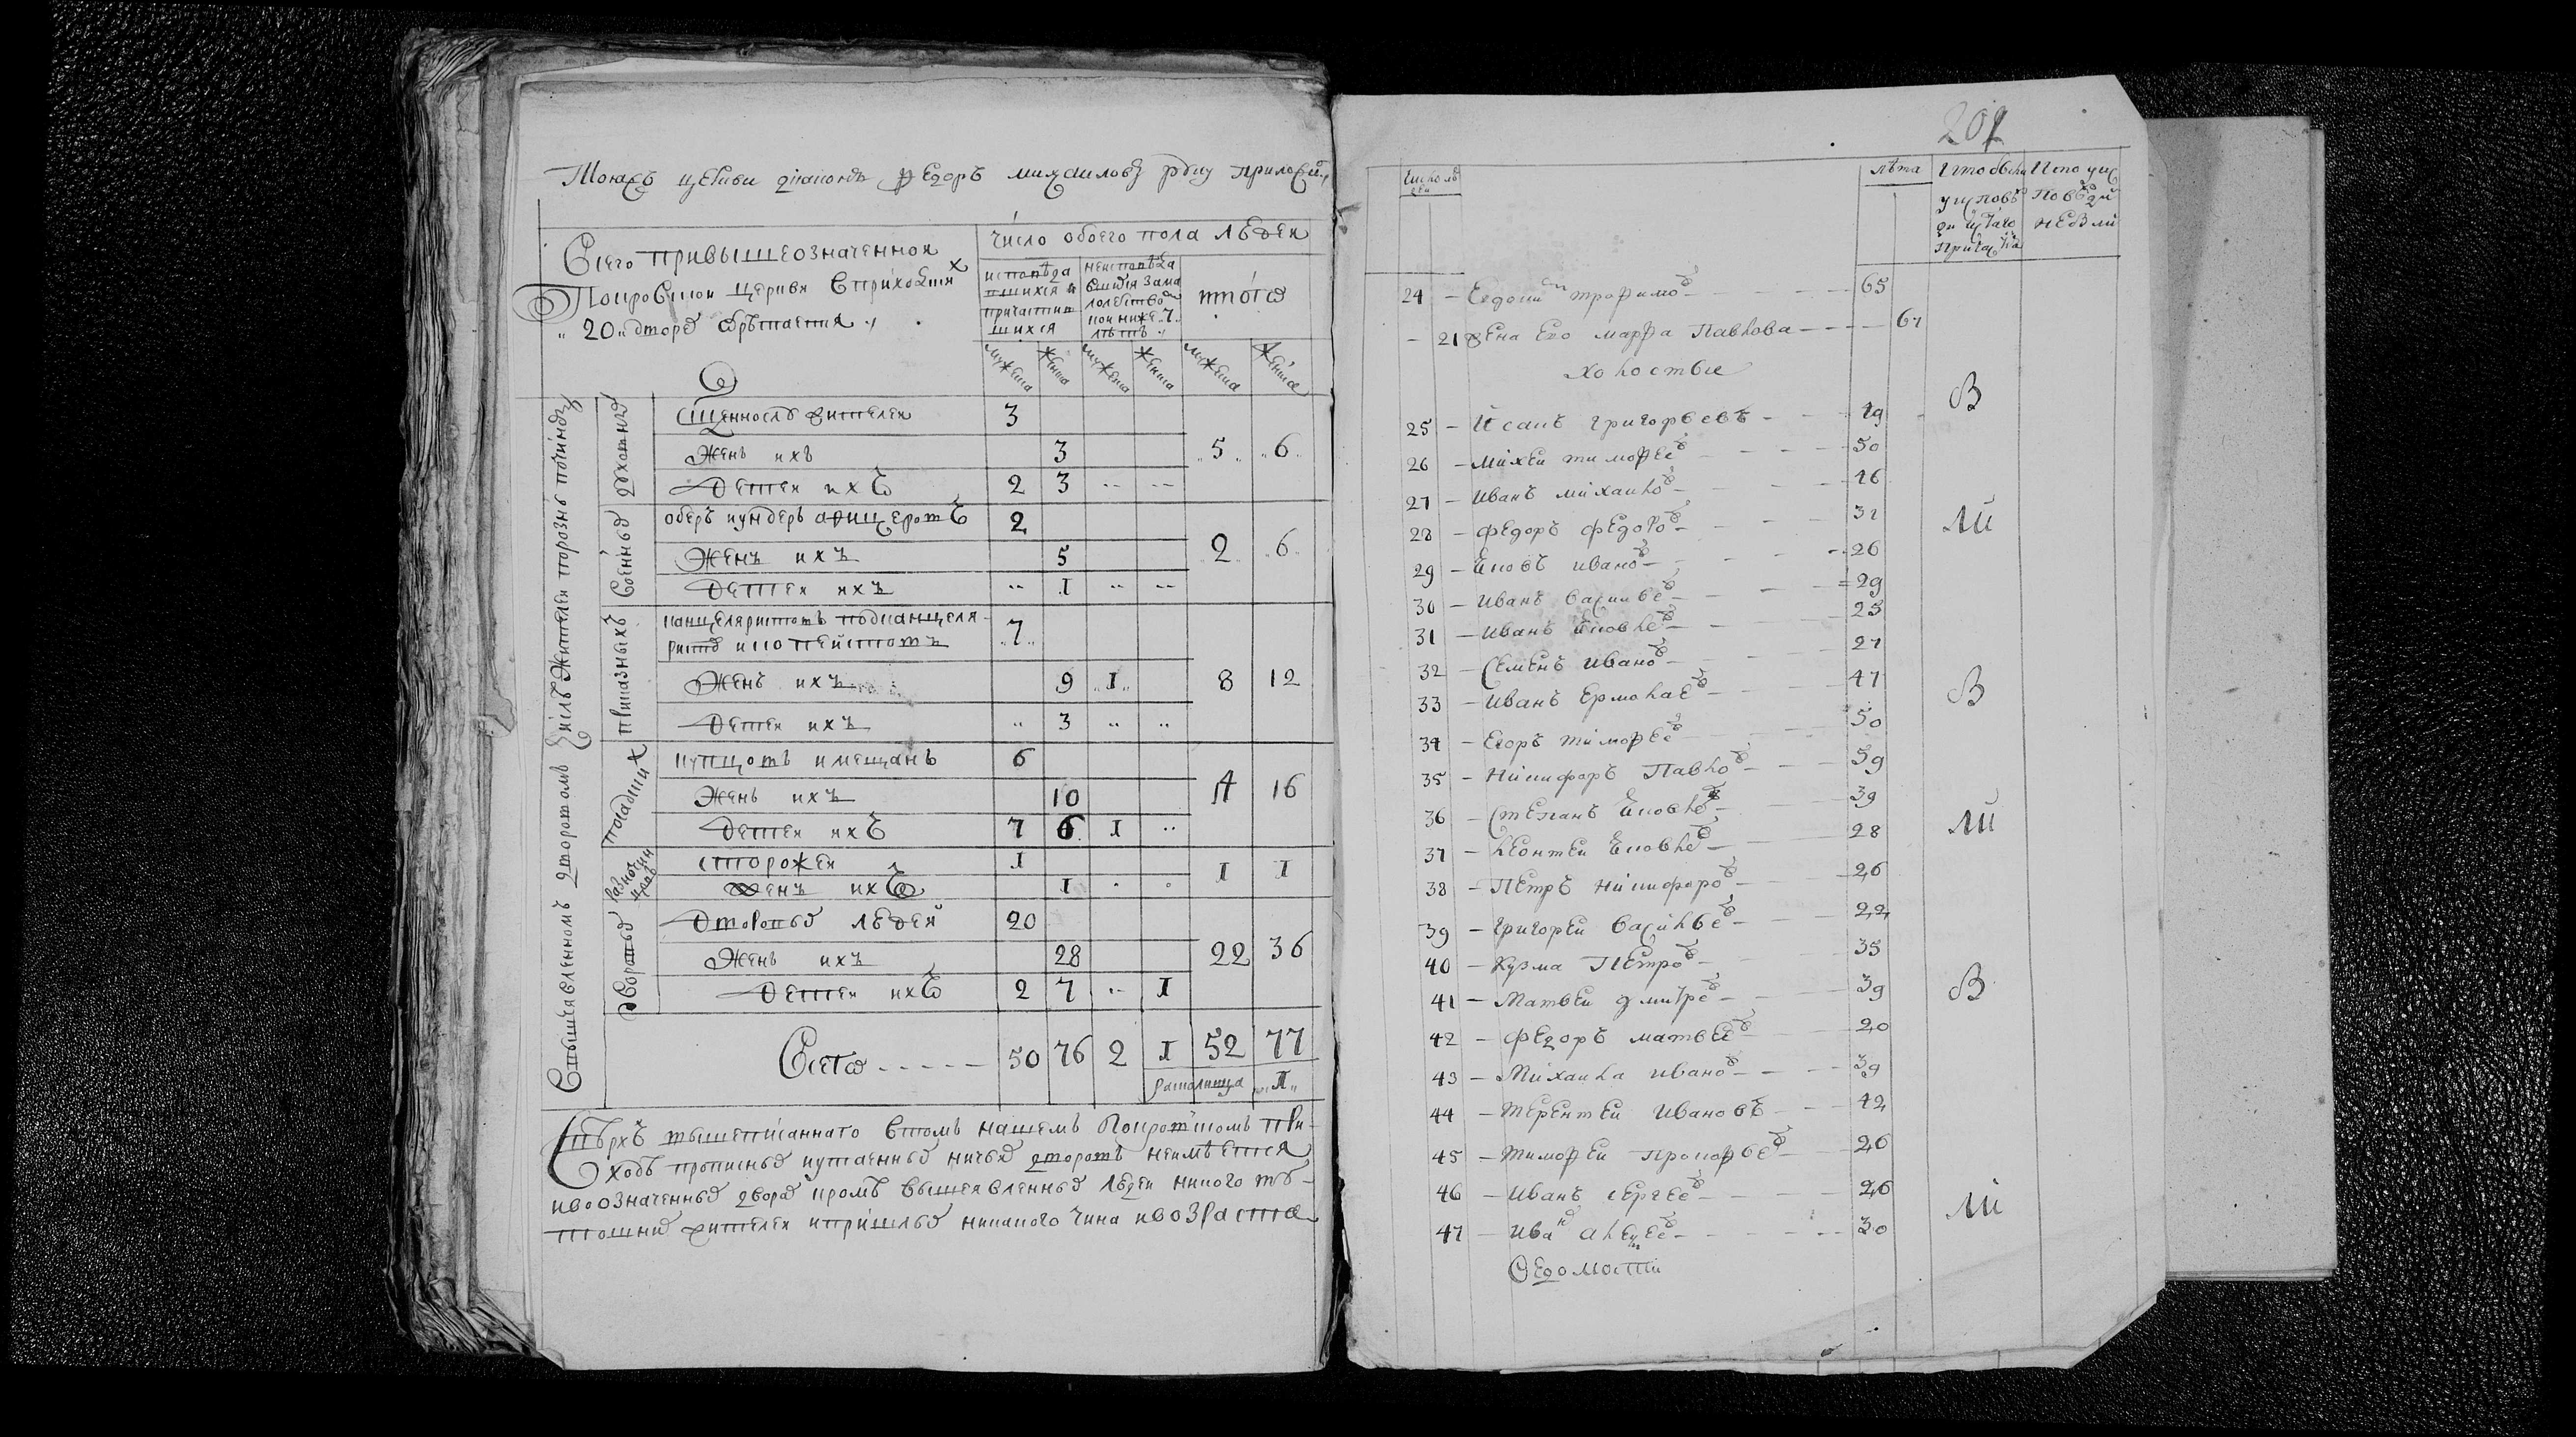 Тояжъ церкви диаконъ Федоръ михаиловъ руку приложилъ
Всего привышеозначеннои
Покровскои церкви вприходских
20 дворѣ обрѣтается
число обоего пола людеи
исповѣда
вшихся и
причастив
шихся
неисповѣда
вшихся зама
лолетство
пониже 7
лѣтъ
итого
мужеска женска мужеска женска мужеска женска
Священнослужителеи 3
Женъ ихъ 3 5 6
Детеи ихъ 2 3
оберъ иундеръ афицеровъ 2
Женъ ихъ 5 2 6
Детеи ихъ 1
приказныхъ
канцеляристовъ подканцеля
ристовъ икопеистовъ 7
Женъ ихъ 9 1 8 12
Детеи ихъ 3
купцовъ имещанъ 6
Женъ ихъ 10 14 16
Детеи ихъ 7 6 1
сторожеи 1
Женъ ихъ 1 1 1
Дворовыхъ людеи 20
Женъ ихъ 28 22 36
Детеи ихъ 2 7 1
Всего 50 76 2 1 52 77
раскольница 1
Сверхъ вышеписаннаго втомъ нашемъ Покровскомъ при
ходѣ прописныхъ иутаенныхъ ничьихъ дворовъ неимѣется
ивоозначенныхъ дворахъ кромѣ вышеявленныхъ людеи никого ту
тошнихъ жителеи ипришлыхъ никакого чина ивозраста
202
Число лю
деи
лѣта
24 Евдоким трофимовъ 65
21 жена Его марфа Павлова 61
холостые
25 Исаиъ григорьевъ 19
26 Михеи тимофеевъ 50
27 Иванъ михаиловъ 16
28 Федоръ федоровъ 32
29 Яковъ ивановъ 26
30 Иванъ васильевъ 29
31 Иванъ яковлевъ 25
32 Семенъ ивановъ 27
33 Иванъ Ермолаевъ 47
34 Егоръ тимофеевъ 50
35 Никифоръ Павловъ 59
36 Степанъ яковлевъ 39
37 Леонтеи яковлевъ 28
38 Петръ никифоровъ 26
39 Григореи васильевъ 22
40 Кузма Петровъ 35
41 Матвеи дмитревъ 39
42 Федоръ матвеевъ 20
43 Михаила ивановъ 39
44 Терентеи Ивановъ 42
45 Тимофеи прокофьевъ 26
46 Иванъ сергеевъ 26
47 Иван алексеевъ 30
Ведомости
В
ли
В
ли
В
ли